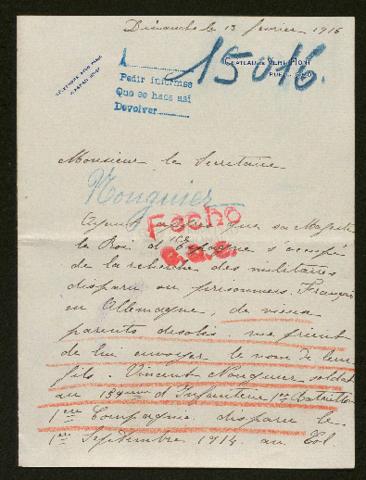 Dimanche le 13 février 1916
A
Pedir informes
Que se haga así
Devolver
15016.
Monsieur le Secrétaire
Nouguier
Ayant appris que sa Majesté
le Roi d'Espagne s'occupe
de la recherche des militaires
disparu ou prisonniers Français
en Allemagne, de vieux
parents désolés me prient
de lui envoyer le nom de leur
fils. Vincent Nouguier soldat
au d'Infanterie 1er Bataillon
1ère Compagnie disparu le
1er Septembre 1914 au Col
Fecho